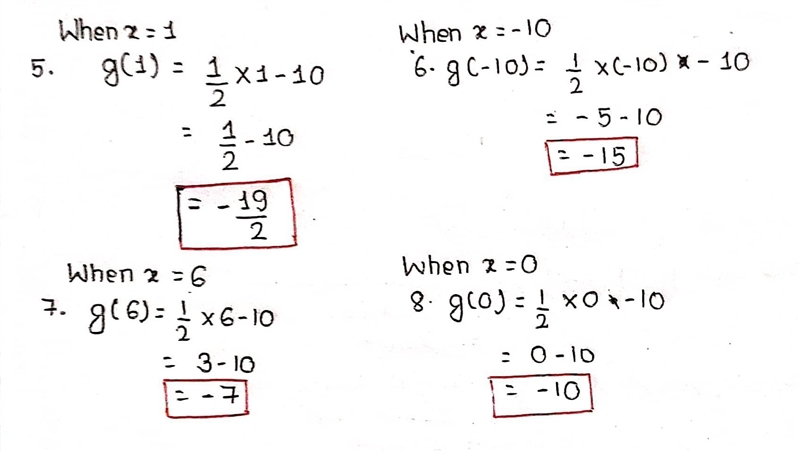 When x = 1
5. g(1) = 1/2 × 1 - 10
= 1/2 - 10
= - 19/2
When x = -10
6. g(-10) = 1/2 × (-10) - 10
= -5 - 10
= -15
When x = 6
7. g(6) = 1/2 × 6 - 10
= 3 - 10
= -7
When x = 0
8. g(0) = 1/2 × 0 - 10
= 0 - 10
= -10